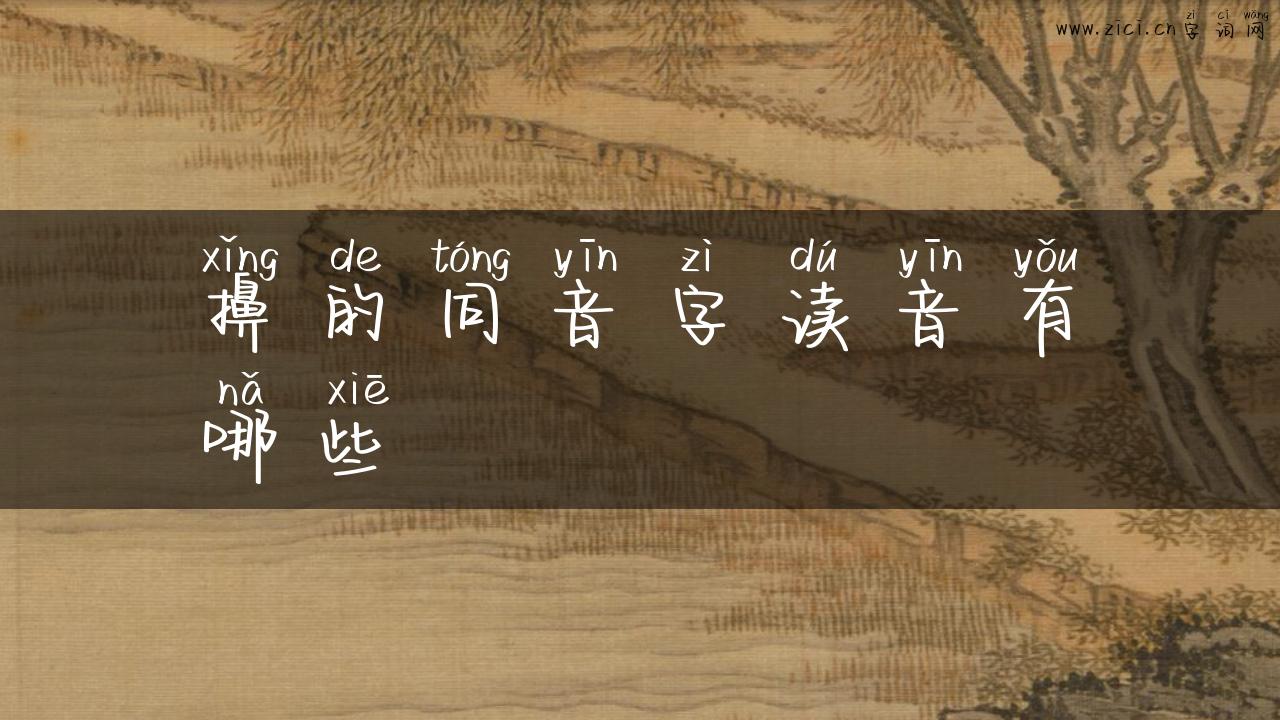 www.zici.cn 字词网
zì cí wǎng
xǐng de tóng yīn zì dú yīn yǒu
擤的同音字读音有
nǎ xiē
哪些